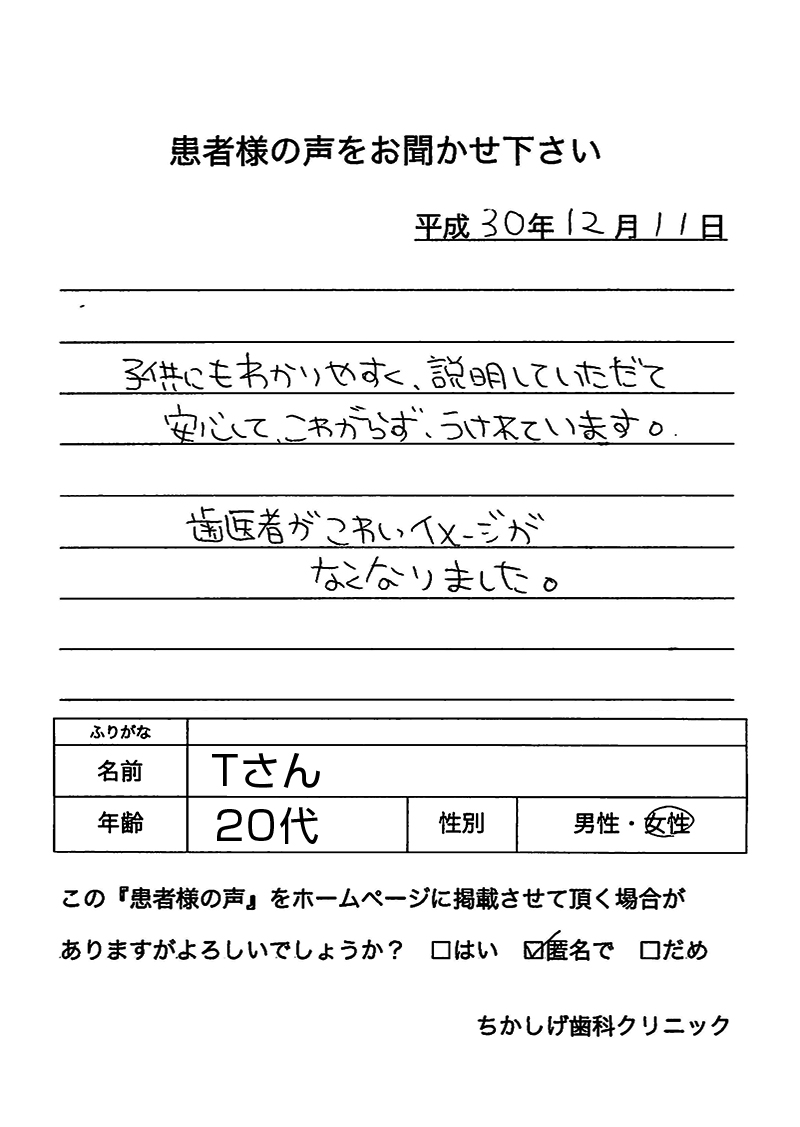 患者様の声をお聞かせ下さい
平成30年12月11日
子供にもわかりやすく、説明していただて
安心して、こわがらず、うけれています。
歯医者がこわいイメージが
なくなりました。
ふりがな
名前 Tさん
年齢 20代 性別 男性・女性
この『患者様の声』をホームページに掲載させて頂く場合が
ありますがよろしいでしょうか？ □はい ☑匿名で □だめ
ちかしげ歯科クリニック